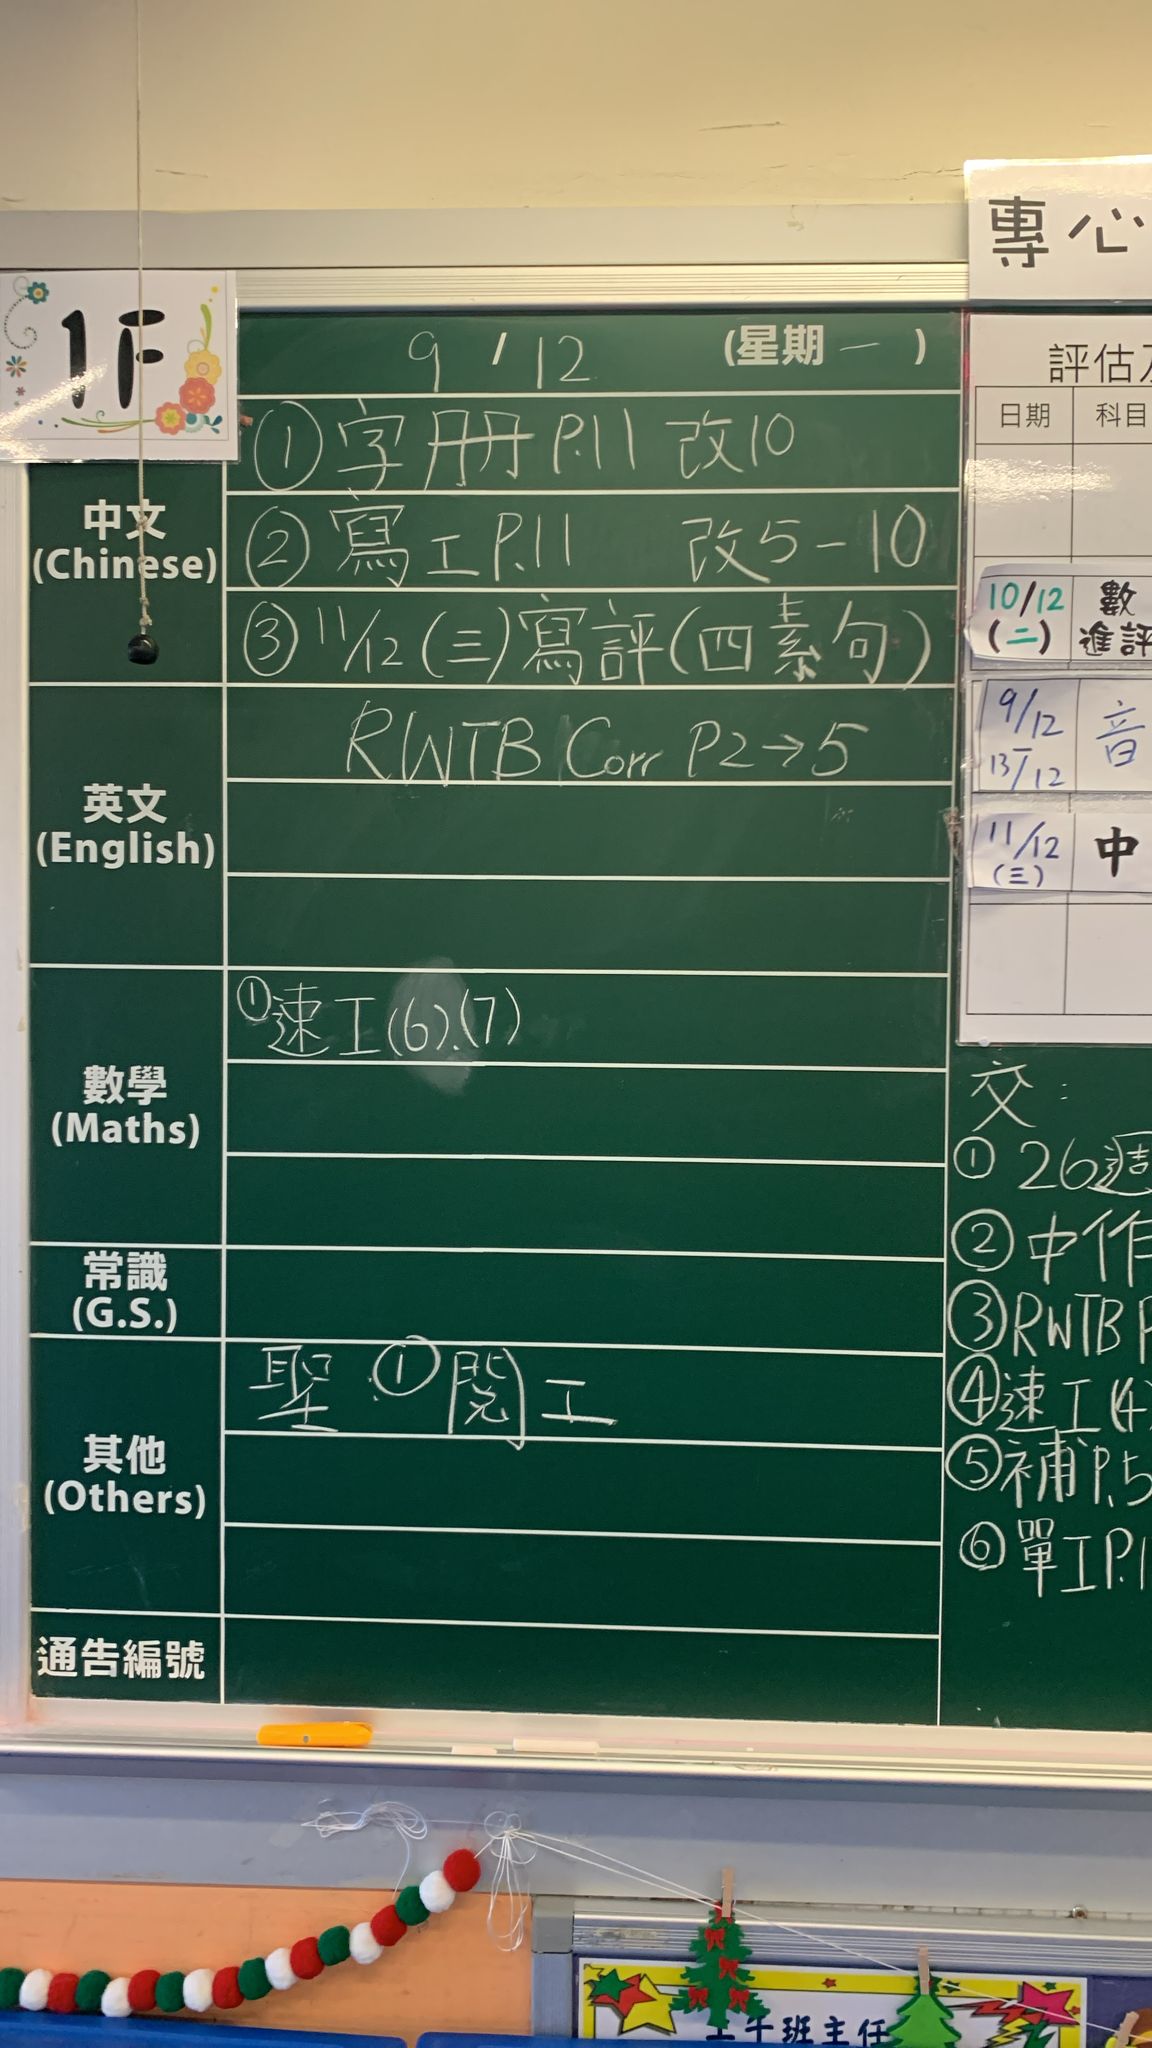 專心
1F
9/12 (星期一)
中文
(Chinese)
①字册 P.11 改10
②寫工P.11 改5-10
③11/12(三)寫評(四素句)
英文
(English)
RWTB Corr P2→5
數學
(Maths)
①速工(6).(7)
常識
(G.S.)
其他
(Others)
聖:①閱工
通告編號
評估
日期 科目
10/12
(二)
數
進評
9/12
13/12
音
11/12
(三)
中
交:
① 26週
②中作
③RWTB P
④速工(4)
⑤補P.5
⑥單工P.1
班主任